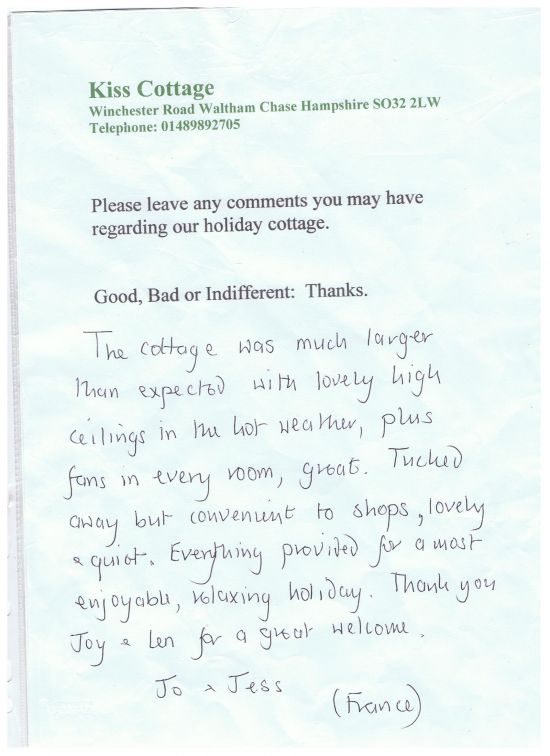 Kiss Cottage
Winchester Road Waltham Chase Hampshire SO32 2LW
Telephone: 01489892705
Please leave any comments you may have
regarding our holiday cottage.
Good, Bad or Indifferent:  Thanks.
The cottage was much larger
than expected with lovely high
ceilings in the hot weather, plus
fans in every room, great. Tucked
away but convenient to shops, lovely
& quiet. Everything provided for a most
enjoyable, relaxing holiday. Thank you
Joy & Len for a great welcome.
Jo & Jess
(France)